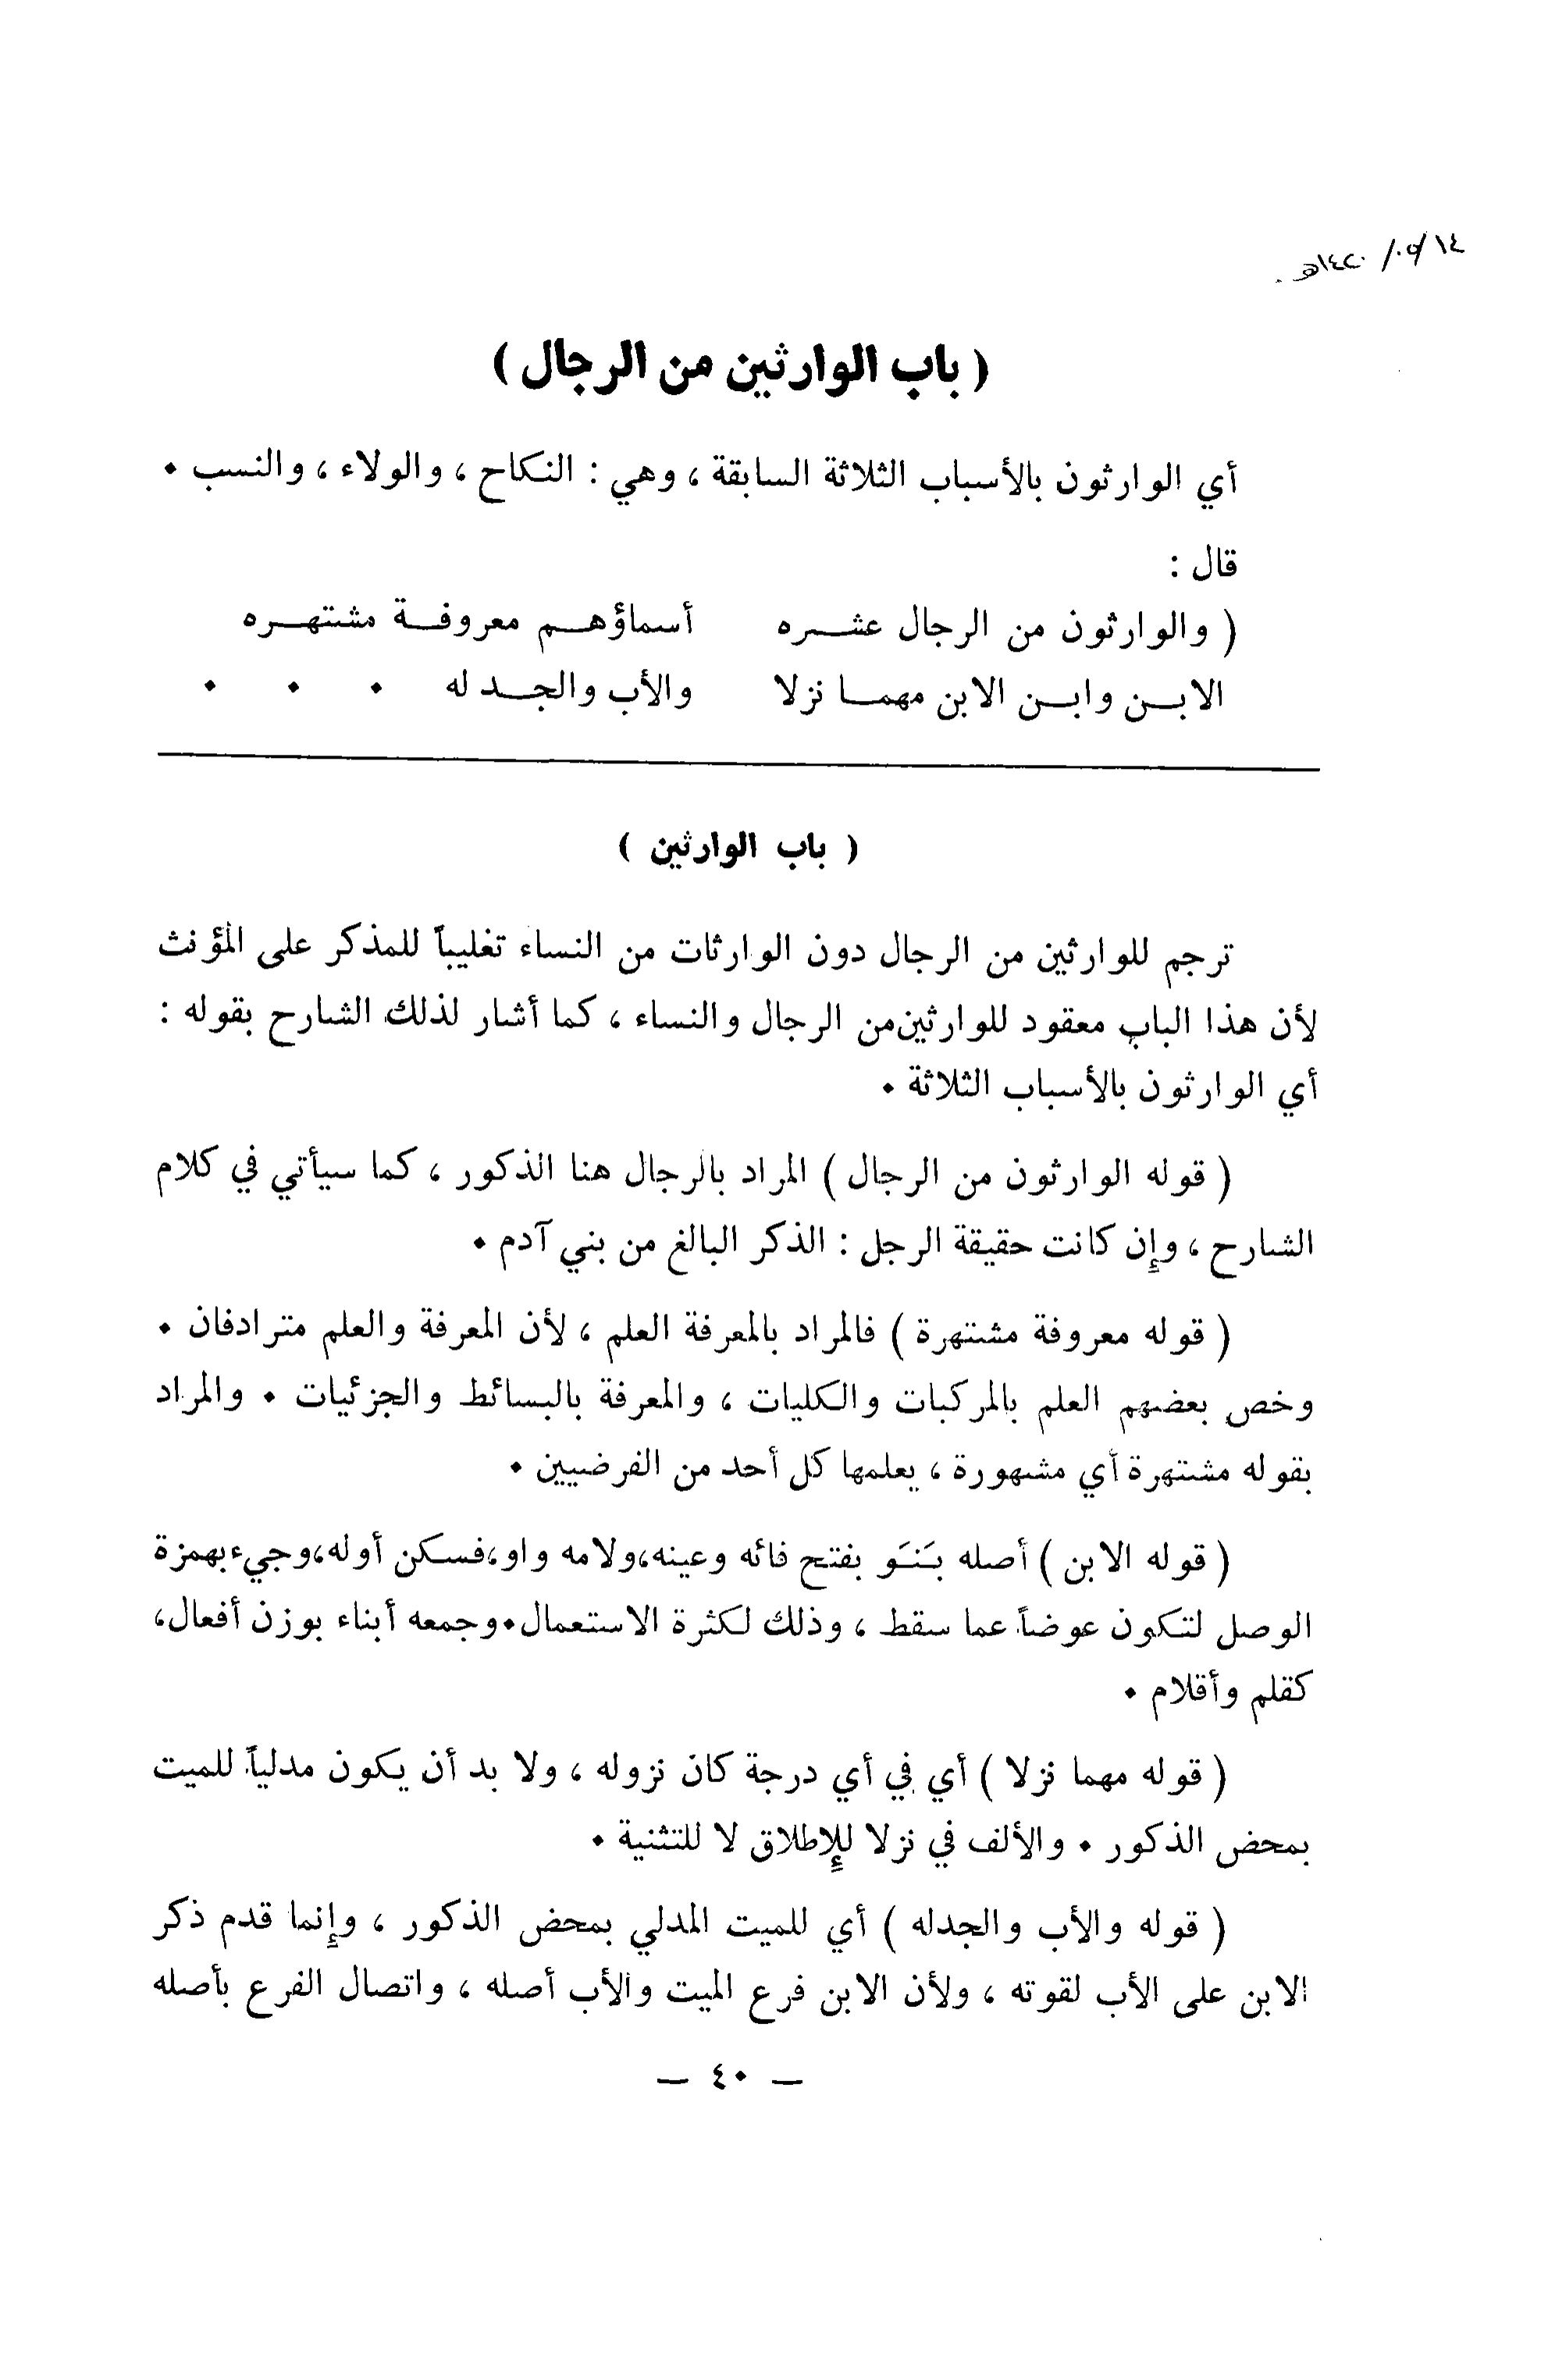 ١٤/٠٥/١٤٢٠هـ.
( باب الوارثين من الرجال )
أي الوارثون بالأسباب الثلاثة السابقة ، وهي : النكاح ، والولاء ، والنسب .
قال :
( والوارثون من الرجال عشره أسماؤهم معروفة مشتهره
الابن وابن الابن مهما نزلا والأب والجد له . . .
( باب الوارثين )
ترجم للوارثين من الرجال دون الوارثات من النساء تغليباً للمذكر على المؤنث
لأن هذا الباب معقود للوارثين من الرجال والنساء ، كما أشار لذلك الشارح بقوله :
أي الوارثون بالأسباب الثلاثة .
( قوله الوارثون من الرجال ) المراد بالرجال هنا الذكور ، كما سيأتي في كلام
الشارح ، وإن كانت حقيقة الرجل : الذكر البالغ من بني آدم .
( قوله معروفة مشتهرة ) فالمراد بالمعرفة العلم ، لأن المعرفة والعلم مترادفان .
وخص بعضهم العلم بالمركبات والكليات ، والمعرفة بالبسائط والجزئيات . والمراد
بقوله مشتهرة أي مشهورة ، يعلمها كل أحد من الفرضيين .
( قوله الابن ) أصله بَنَو بفتح فائه وعينه،ولامه واو،فسكن أوله،وجيء بهمزة
الوصل لتكون عوضاً عما سقط ، وذلك لكثرة الاستعمال.وجمعه أبناء بوزن أفعال،
كقلم وأقلام .
( قوله مهما نزلا ) أي في أي درجة كان نزوله ، ولا بد أن يكون مدلياً للميت
بمحض الذكور . والألف في نزلا للإطلاق لا للتثنية .
( قوله والأب والجد له ) أي للميت المدلي بمحض الذكور ، وإنما قدم ذكر
الابن على الأب لقوته ، ولأن الابن فرع الميت والأب أصله ، واتصال الفرع بأصله
— ٤٠ —